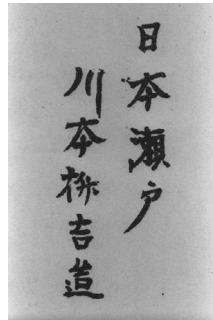 日本瀬戸
川本桝吉造